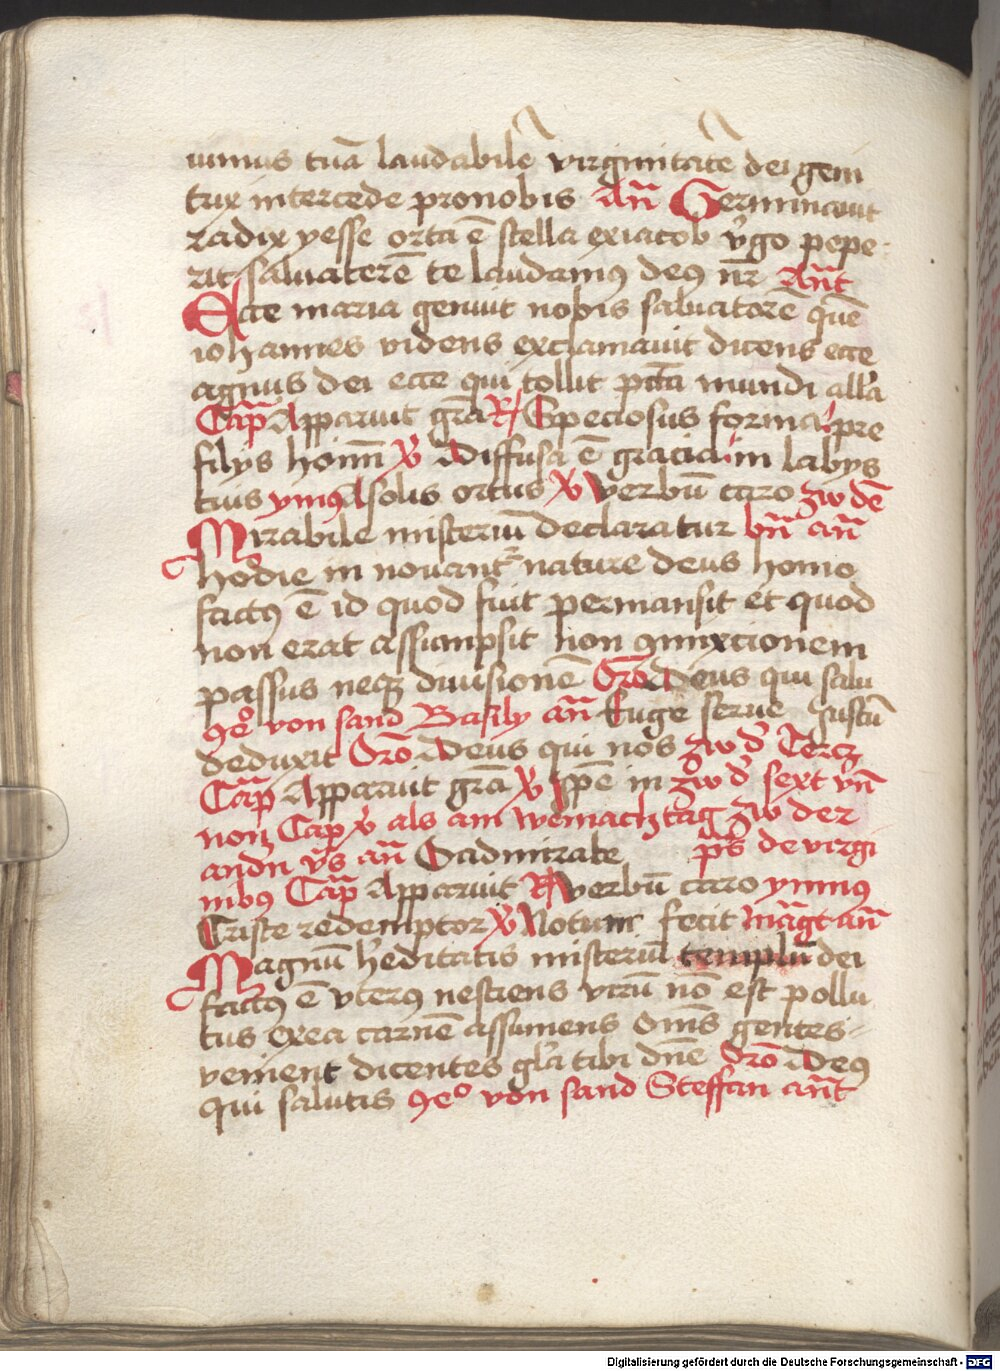 uimus tuā laudabilē virginitatē dei geni
trix intercede pronobis An̄ Germinauit
radix yesse orta ē stella exiacob v̓go pepe-
rit saluatorē te laudamꝰ deꝰ nr̄ An̄t
Ecce maria genuit nobis saluatorē quē
iohannes videns exclamauit dicens ecce
agnus dei ecce qui tollit pctā mundi all̓a
Cap̄ Apparuit gr̄a R/ Speciosus forma pre
filijs homī ℣ Diffusa ē gracia in labijs
tuis ymꝰ A solis ortus ℣ verbū caro zw dē
Mirabile misteriū declaratur bn̄ an̄
hodie in nouant᷑ nature deus homo
factꝰ ē id quod fuit permansit et quod
non erat assumpsit non ꝯmixtionem
passus neqꝫ diuisionē Orō Deus qui salu
ꝯeº von sand Basily an̄ Euge serue Justū
deduxit Orō Deus qui nos zw d̓ Tercz
Cap̄ Apparuit gr̄a ℣ ip̄e in zw d̓ sext vn̄
non Cap ℣ als am weinachtag zw der
andn v̓s an̄ O admirabe ps̄ de virgi
nibꝰ Cap̄ Apparuit R/ verbū caro ymnꝰ
Criste redemptor ℣ Notum fecit māgt an̄
Magnū h̓editatis misteriū templū dei
factꝰ ē vterꝰ nesciens virū nō est pollu
tus exea carnē assumens Om̄s gentes
venient dicentes gl̓a tibi dn̄e Orō Deꝰ
qui salutis ꝯeº von sand Steffan an̄t
Digitalisierung gefördert durch die Deutsche Forschungsgemeinschaft - DFG